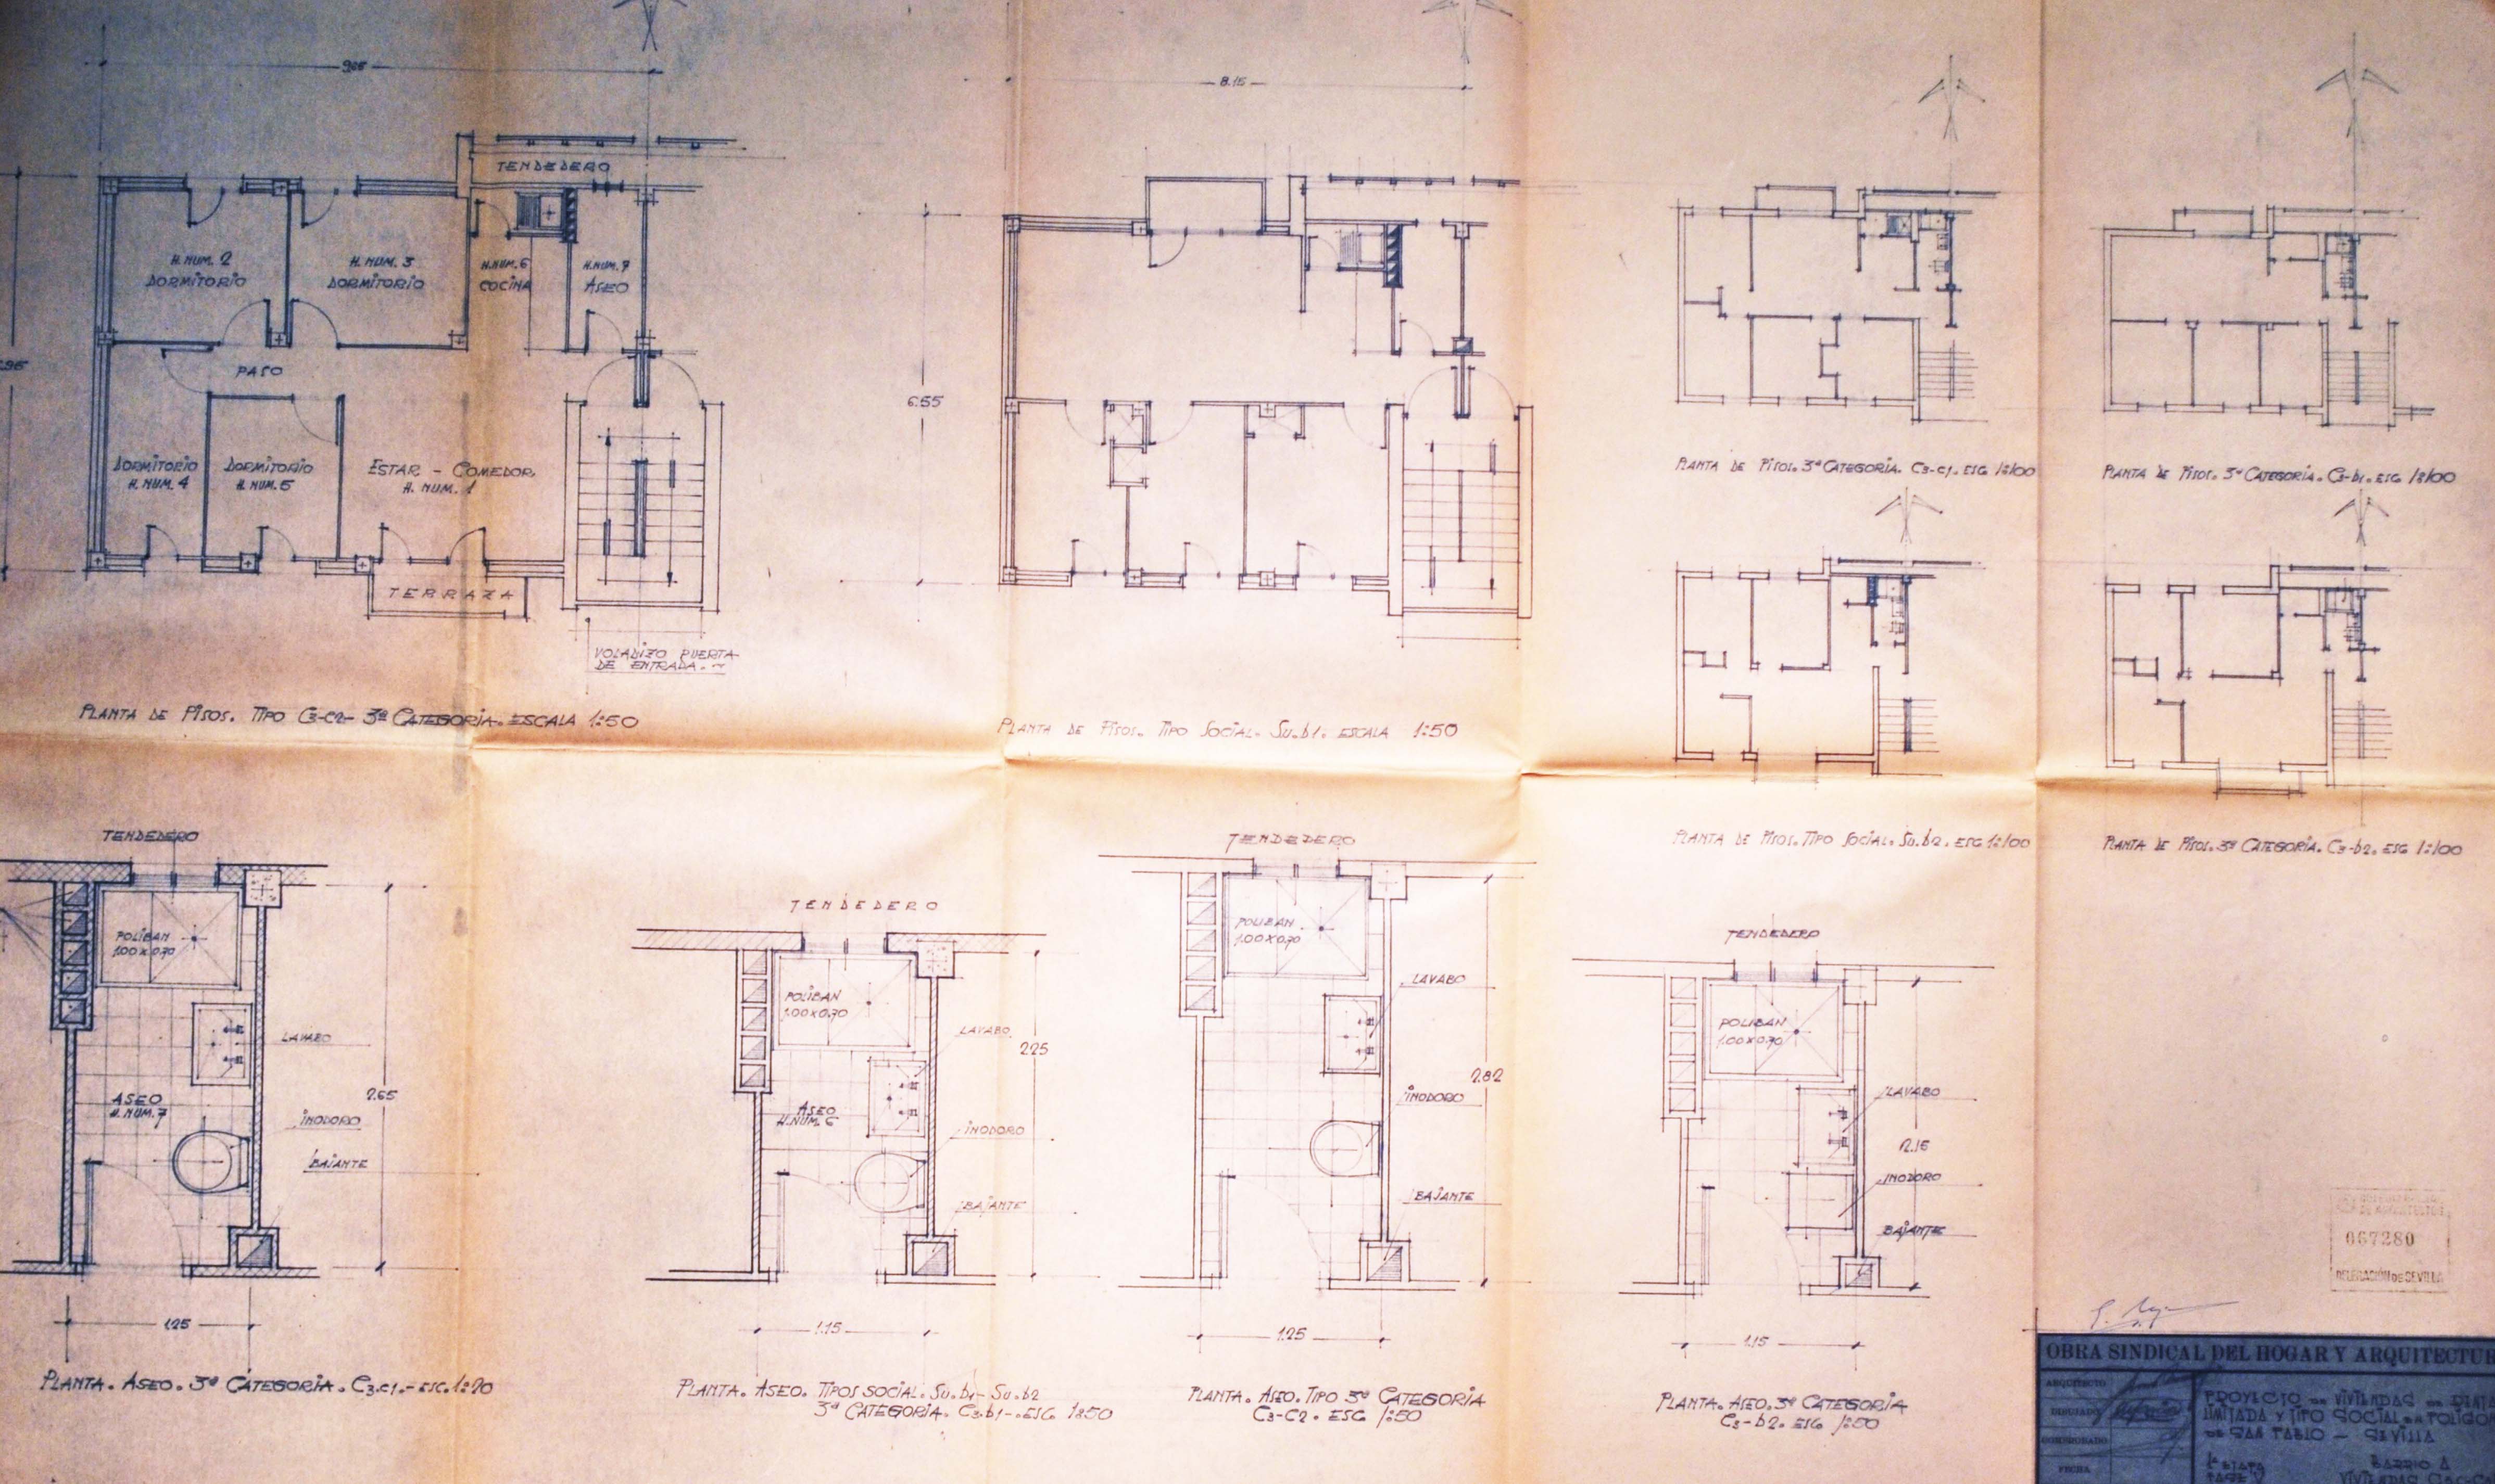 9.05
TENDEDERO
H. NUM. 2
DORMITORIO
H. NUM. 3
DORMITORIO
H. NUM. 6
COCINA
H. NUM. 7
ASEO
PASO
DORMITORIO
H. NUM. 4
DORMITORIO
H. NUM. 5
ESTAR - COMEDOR
H. NUM. 1
TERRAZA
VOLADIZO PUERTA
DE ENTRADA.
PLANTA DE PISOS. TIPO C3-C2- 3ª CATEGORÍA. ESCALA 1:50
8.15
6.55
PLANTA DE PISOS. TIPO SOCIAL. SU.b1. ESCALA 1:50
PLANTA DE PISOS. 3ª CATEGORÍA. C3-C1. ESC 1:100
PLANTA DE PISOS. 3ª CATEGORÍA. C3-b1. ESC 1:100
PLANTA DE PISOS. TIPO SOCIAL. SU.b2. ESC 1:100
PLANTA DE PISOS. 3ª CATEGORÍA. C3-b2. ESC 1:100
TENDEDERO
POLIBAN
1.00X0.70
LAVABO
2.65
ASEO
H. NUM. 7
INODORO
BAJANTE
1.25
PLANTA. ASEO. 3ª CATEGORÍA. C3.C1.- ESC. 1:20
TENDEDERO
POLIBAN
1.00X0.70
LAVABO
2.25
ASEO
H. NUM. 6
INODORO
BAJANTE
1.15
PLANTA. ASEO. TIPOS SOCIAL. SU.b1- SU.b2
3ª CATEGORÍA. C3.b1-. ESC 1:50
TENDEDERO
POLIBAN
1.00X0.70
LAVABO
2.82
INODORO
BAJANTE
1.25
PLANTA. ASEO. TIPO 3ª CATEGORÍA
C3-C2. ESC 1:50
TENDEDERO
POLIBAN
1.00X0.70
LAVABO
2.15
INODORO
BAJANTE
1.15
PLANTA. ASEO. 3ª CATEGORÍA
C3-b2. ESC 1:50
067280
DELEGACIÓN DE SEVILLA
OBRA SINDICAL DEL HOGAR Y ARQUITECTUR
ARQUITECTO
DIBUJADO
COMPROBADO
FECHA
PROYECTO DE VIVIENDAS DE RENTA
LIMITADA Y TIPO SOCIAL EN POLIGO
DE SAN PABLO - SEVILLA
1ª ETAPA
BARRIO A
VIVIENDAS